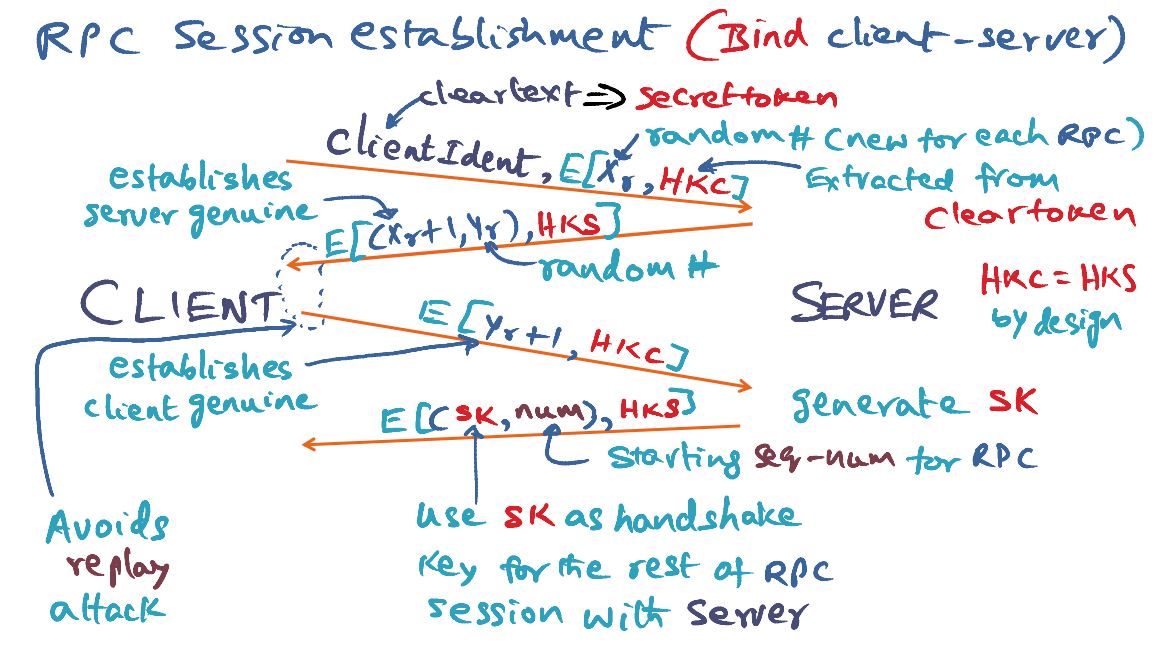 RPC Session establishment (Bind client-server)
cleartext => secrettoken
ClientIdent, E[Xr, HKC]
random # (new for each RPC)
Extracted from
cleartoken
establishes
server genuine
E[(Xr+1, Yr), HKS]
random #
CLIENT
SERVER
HKC = HKS
by design
E[Yr+1, HKC]
establishes
client genuine
E[(SK, num), HKS]
generate SK
Starting seq-num for RPC
Avoids
replay
attack
use SK as handshake
key for the rest of RPC
session with Server